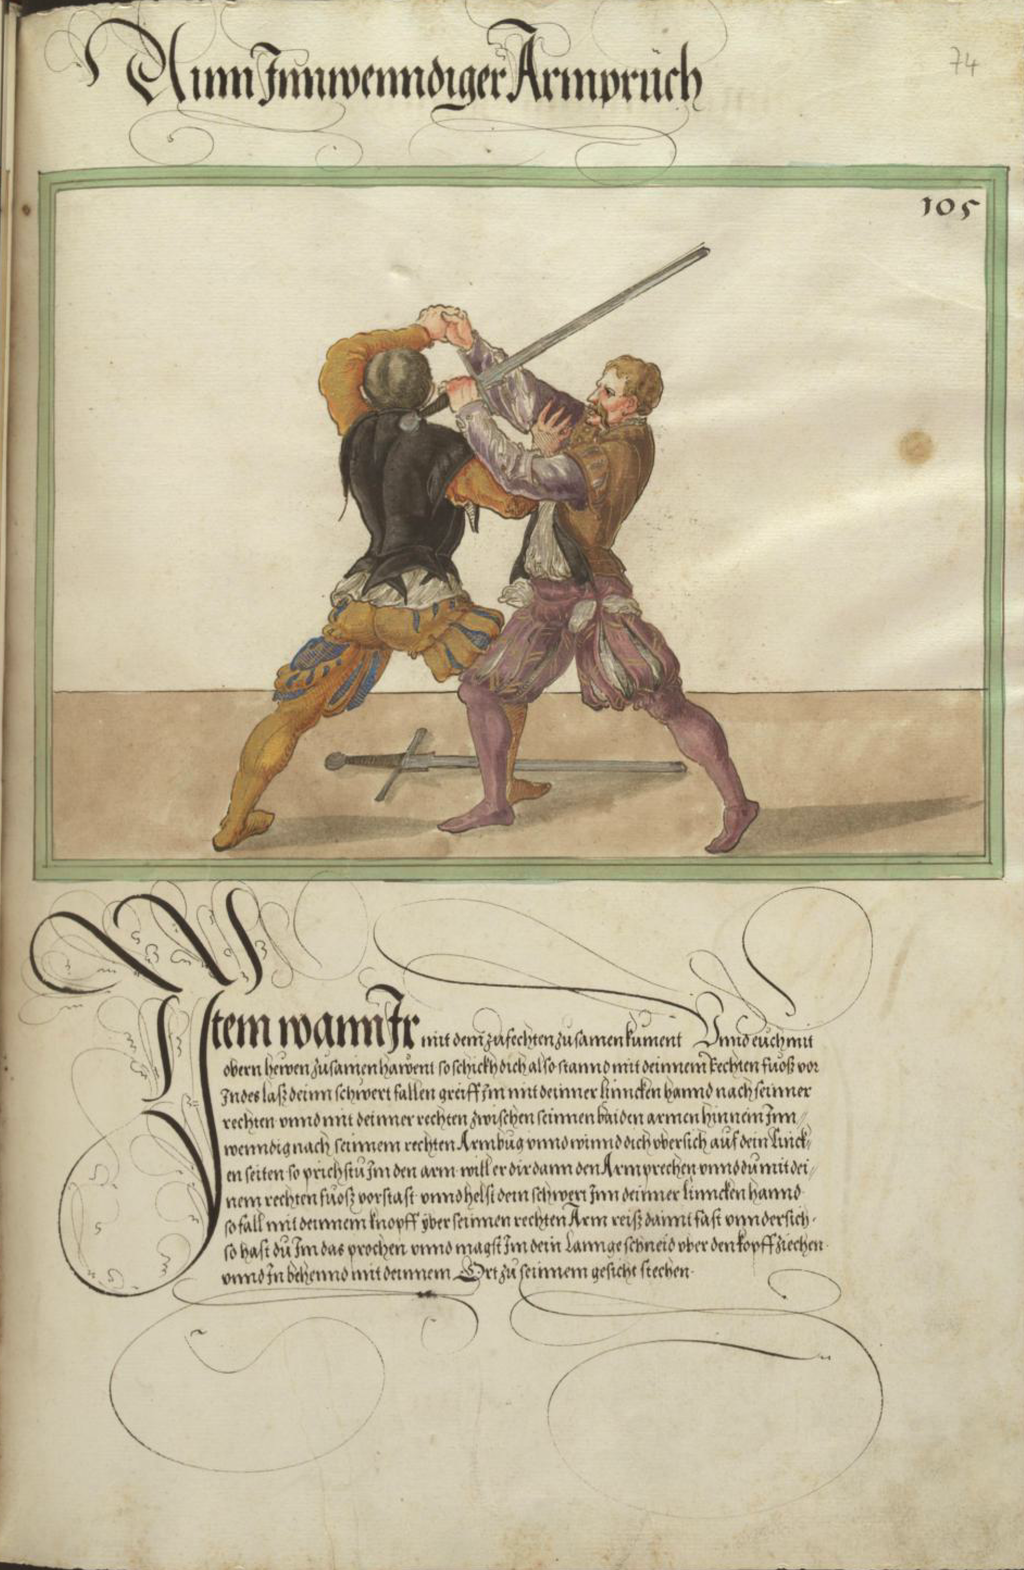 Ainn Innwenndiger Armprüch
74
105
Item wann Ir mit dem zufechten zusamen kument Vnnd euch mit
obern hewen zusamen hawent so schickh dich also stannd mit deinnem Rechten fuosz vor
Indes lasz deinn schwert fallen greiff Im mit deinner linncken hannd nach seinner
rechten vnnd mit deinner rechten zwischen seinnen baiden armen hinnein Inn/
wenndig nach seinnem rechten Armbug vnnd winnd dich vbersich auf dein linck/
en seiten so prichstu Im den arm will er dir dann den Arm prechen vnnd du mit dei/
nem rechten fuosz vorstast vnnd helst dein schwert Inn deinner linncken hannd
so fall mit deinnem knopff yber seinnen rechten Arm reisz damit fast vnndersich.
so hast du Im das prochen vnnd magst Im dein Lannge schneid vber den kopff ziechen.
vnnd In behennd mit deinnem Ort zu seinnem gesicht stechen.